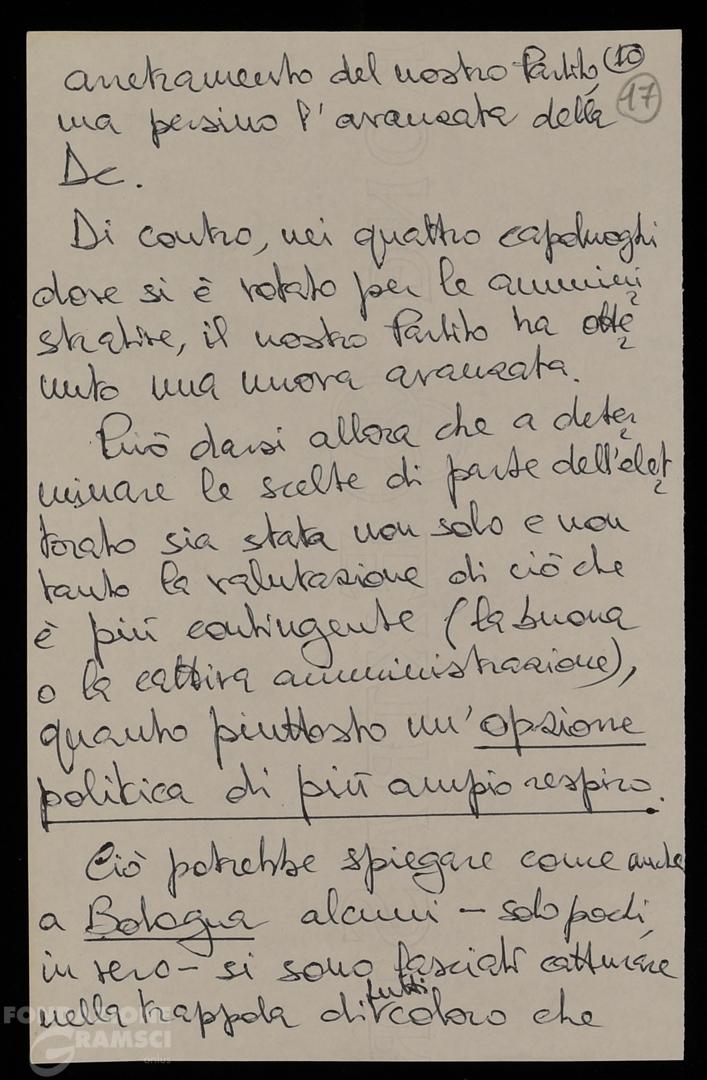 arretramento del nostro Partito, (10)
17
ma persino l'avanzata della
Dc.
Di contro, nei quattro capoluoghi
dove si è votato per le ammini
strative, il nostro Partito ha otte
nuto una nuova avanzata.
Può darsi allora che a deter
minare le scelte di parte dell'elet
torato sia stata non solo e non
tanto la valutazione di ciò che
è più contingente (la buona
o la cattiva amministrazione),
quanto piuttosto un'opzione
politica di più ampio respiro.
Ciò potrebbe spiegare come anche
a Bologna alcuni – solo pochi,
in vero – si sono lasciati catturare
nella trappola di tutti coloro che
FONDAZIONE
GRAMSCI
onlus